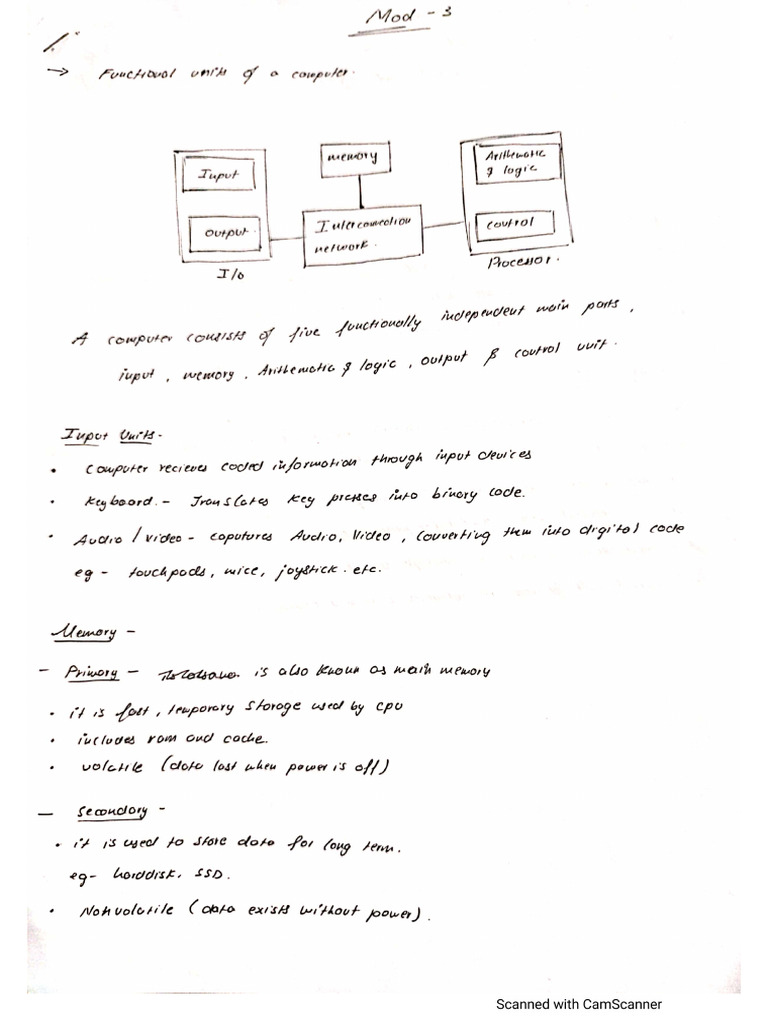 Mod - 3
1.
→ Functional units of a computer.
Input
memory
Arithematic
& logic
output.
Interconnection
network.
control
I/o
Processor.
A computer consists of five functionally independent main parts,
input, memory, Arithematic & logic, output & control unit.
Input Units-
• Computer recieves coded information through input devices
• Keyboard.- Translates key presses into binary code.
• Audio / video - coputures Audio, Video, converting them into digital code
eg - touchpads, mice, joystick. etc.
Memory -
- Primary - is also known as main memory
• it is fast, temporary storage used by cpu
• includes ram and cache.
• volatile (data lost when power is off)
- Secondary -
• it is used to store data for long term.
eg- harddisk, SSD.
• Nonvolatile (data exists without power).
Scanned with CamScanner